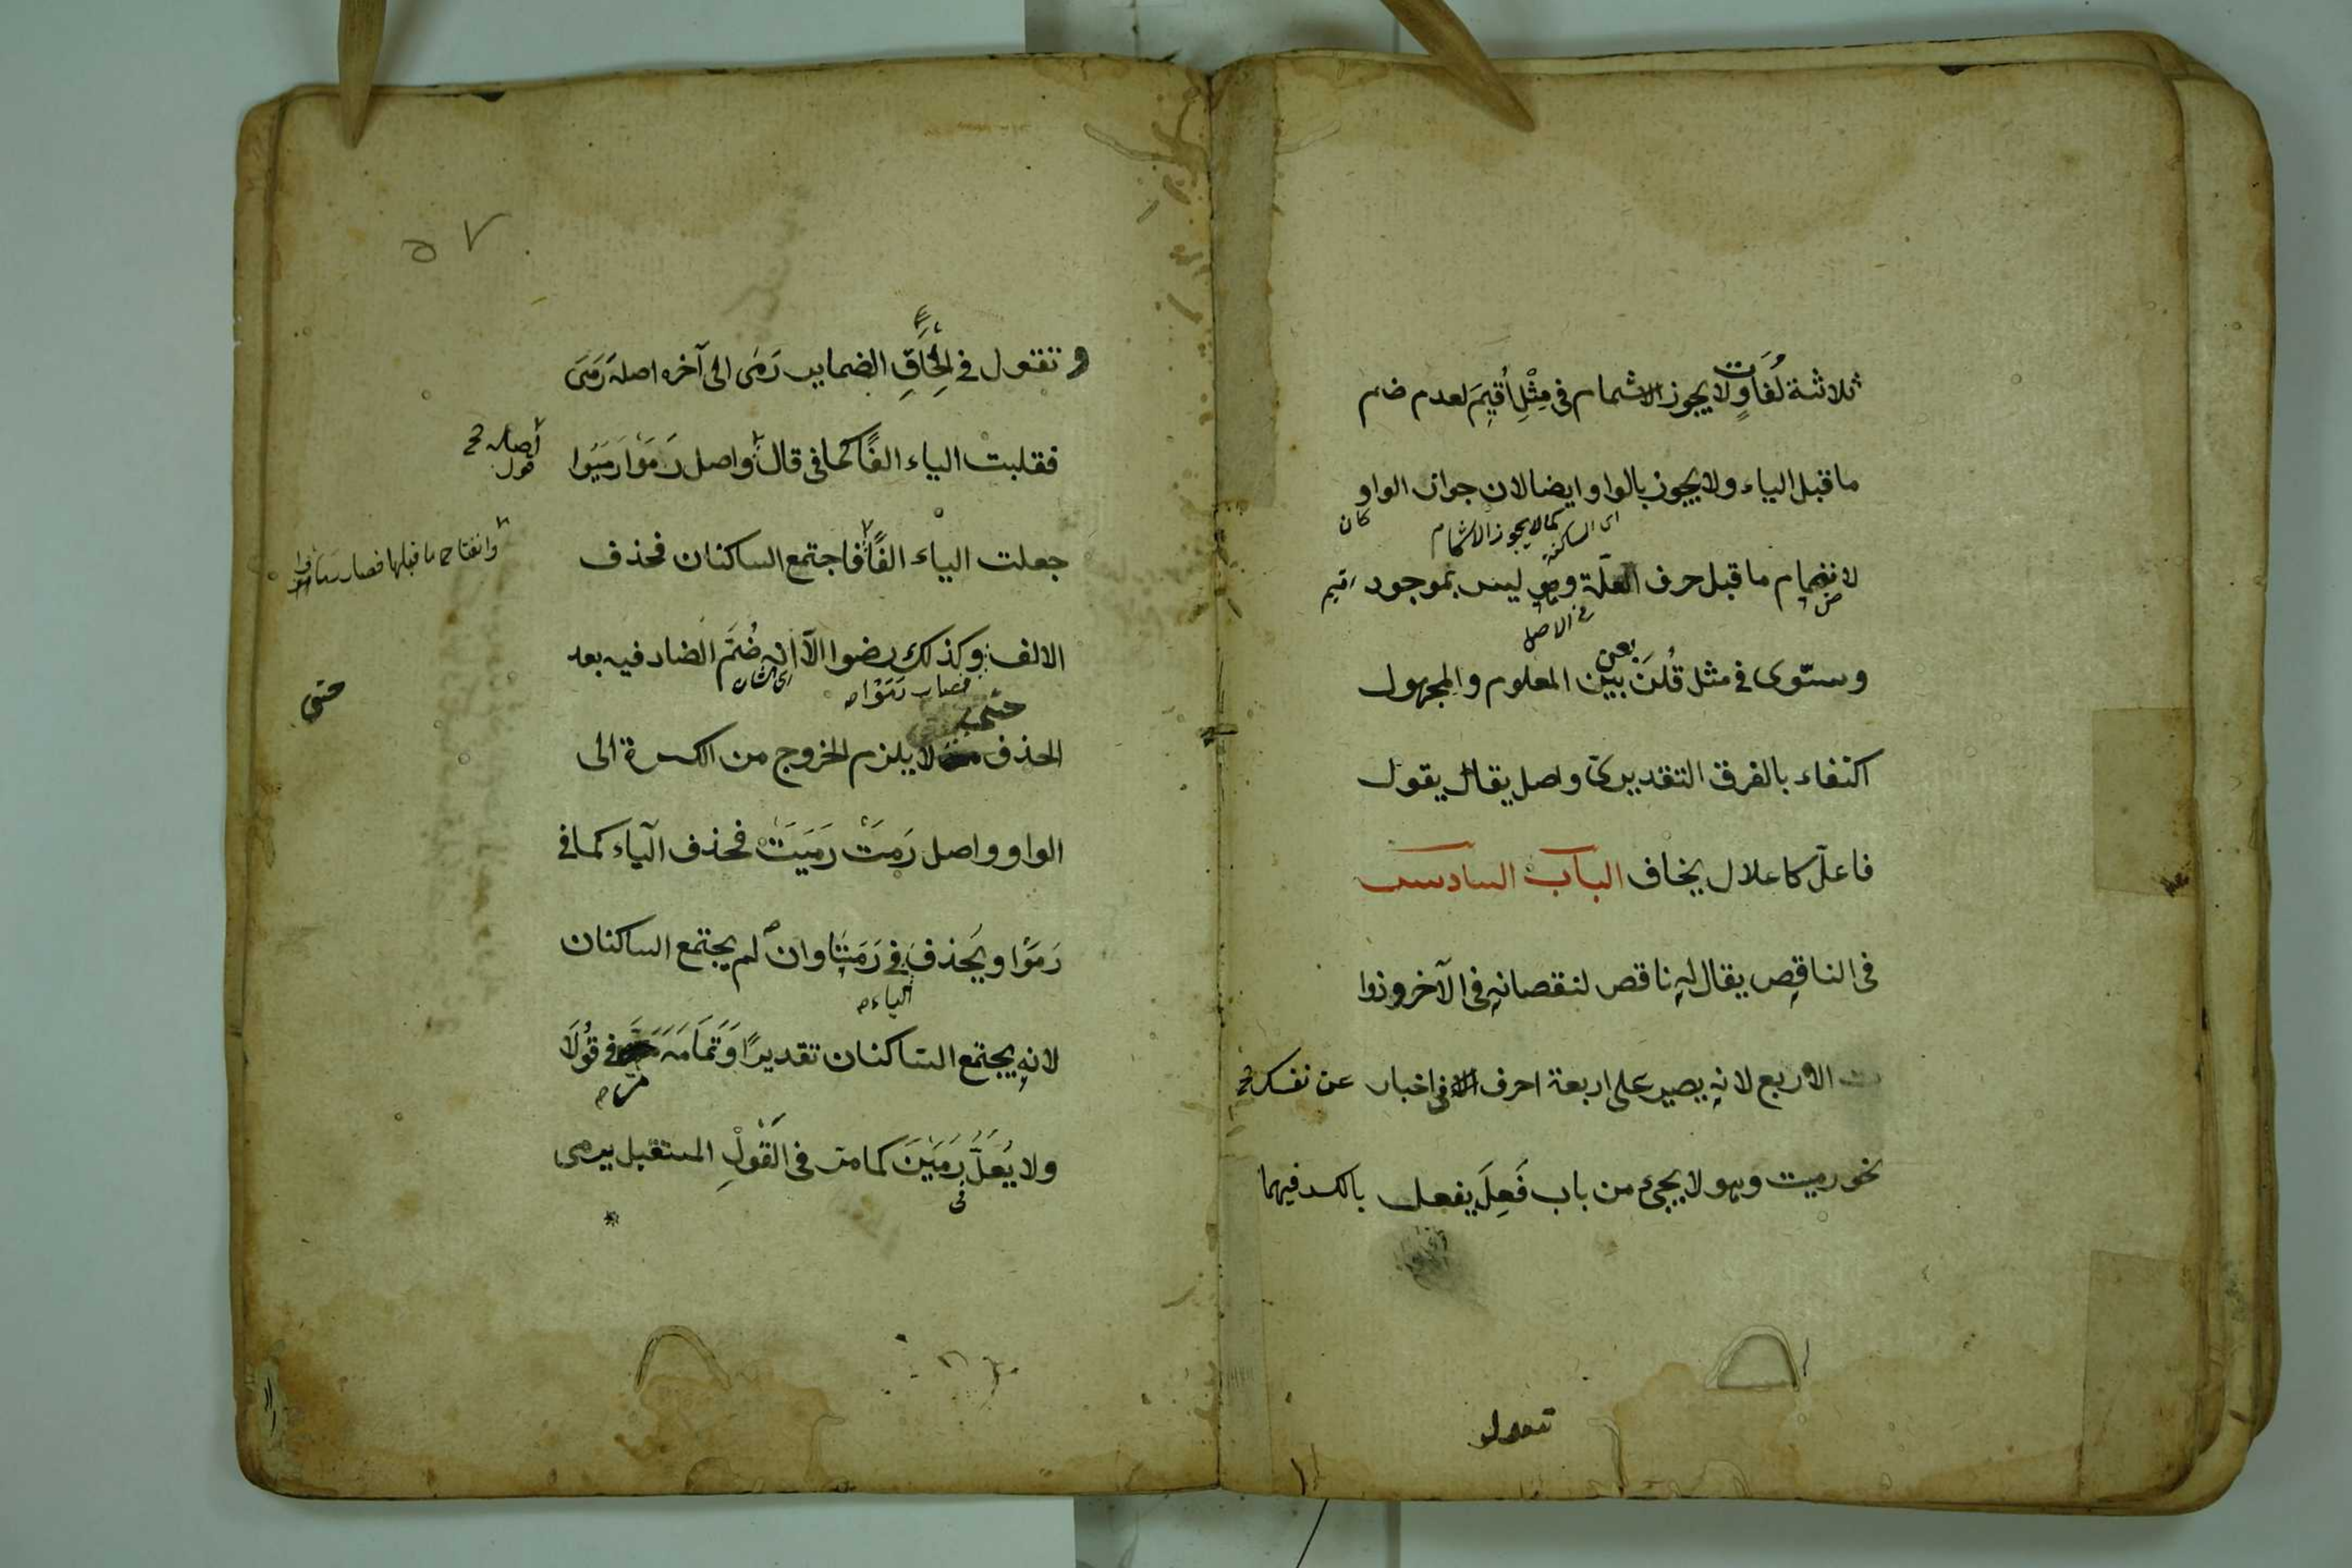 ثلاثة لُغَاتٍ ولا يجوز الاشمام فى مِثْلِ اُقِيمَ لعدم ضم
ما قبل الياء ولا يجوز بالواو ايضا لان جواز الواو
كان
كما لا يجوز الاشمام
اى الساكنة
لانضمام ما قبل حرف العلّة وهو ليس بموجود
فى الاصل
وسوّى فى مثل قُلنَ بعن بين المعلوم والمجهول
اكتفاء بالفرق التقديرىّ واصل يقال يقول
فاعلّ كاعلال يخاف الباب السادس
فى الناقص يقال له ناقص لنقصانه فى الآخر وذوا
ت الاربع لانه يصير على اربعة احرف فى اخبار عن نفسك
نحو رميت وهو لا يجىء من باب فَعِلَ يفعل بالكسر فيهما
تقول
٥٧
وتقول فى اِلْحَاقِ الضماير رَمَى الى آخره اصله رَمَىَ
فقلبت الياء الفًا كما فى قال واصل رَمَوْا رَمَيُوا
اصله قول
جعلت الياء الفًا فاجتمع الساكنان فحذف
وانفتاح ما قبلها فصار
الالف وكذلك رضوا الّا انه ضُمَّ الضاد فيه بعد
فصار رَمَوْا
اى الشان
حتى
الحذف حتى لا يلزم الخروج من الكسرة الى
الواو واصل رَمَتْ رَمَيَتْ فحذف الياء كما فى
رَمَوْا ويُحذف فى رَمَتَا وان لم يجتمع الساكنان
الياء
لانه يجتمع الساكنان تقديرًا وَتَمَامَه مَرَّ فى قُوْلَا
مر
ولا يُعَلُّ رَمَيْنَ كما مر فى القَوْلِ المستقبل يرمى
فى